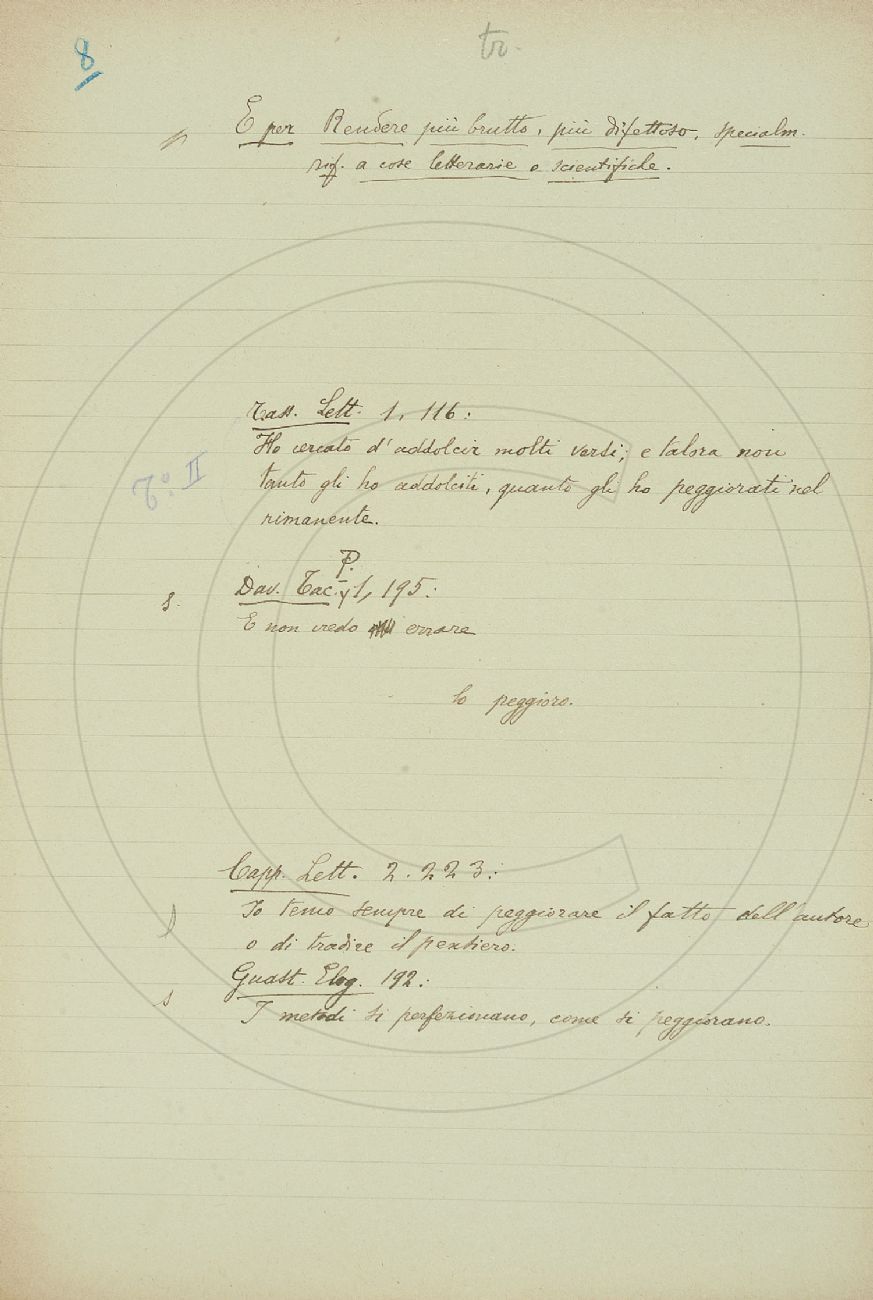 8
tr.
E per Rendere più brutto, più difettoso, specialm.
rif. a cose letterarie o scientifiche.
Tass. Lett. 1, 116:
Ho cercato d'addolcir molti versi; e talora non
tanto gli ho addolciti, quanto gli ho peggiorati nel
T.º II
rimanente.
P.
s. Dav. Tac. 1, 195:
E non credo errare
lo peggioro.
Capp. Lett. 2. 223:
Io temo sempre di peggiorare il fatto dell'autore
o di tradire il pensiero.
s Guast. Elog. 192:
I metodi si perfezionano, come si peggiorano.